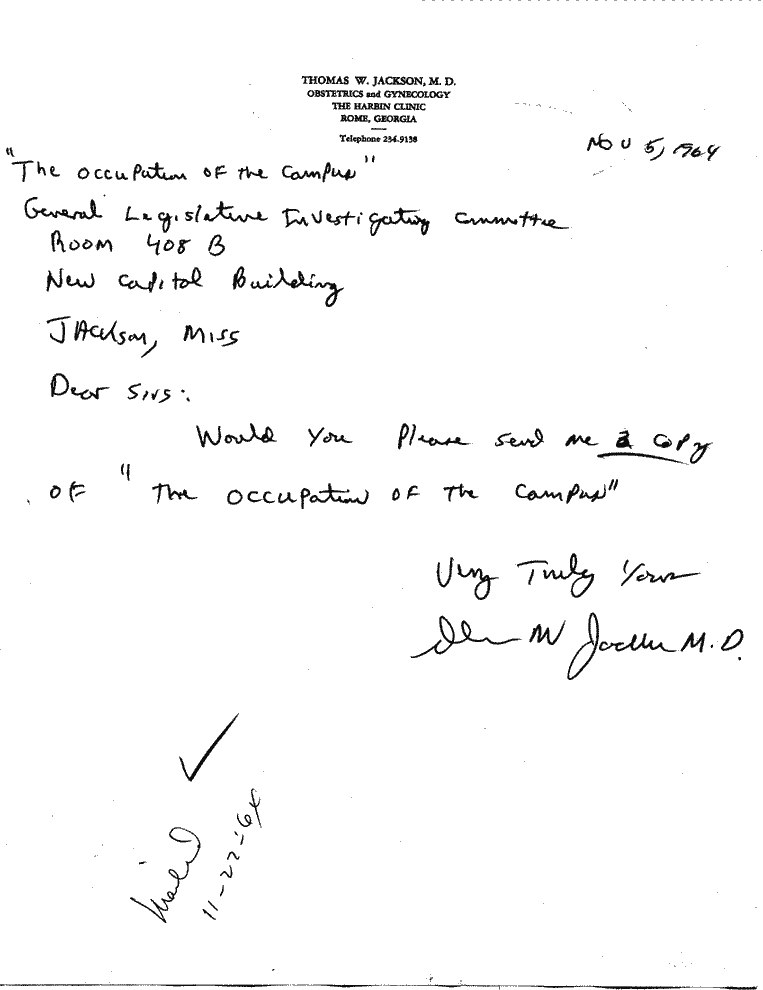 THOMAS W. JACKSON, M. D.
OBSTETRICS and GYNECOLOGY
THE HARBIN CLINIC
ROME, GEORGIA
Telephone 234-9138
Nov 5, 1964
"The Occupation OF the Campus"
General Legislative Investigating Committee
Room 408 B
New Capitol Building
Jackson, Miss
Dear Sirs:
Would You Please send me a copy
OF "The Occupation OF the Campus"
Very Truly Yours
Thomas W Jackson M.D.
Mailed
11-22-64